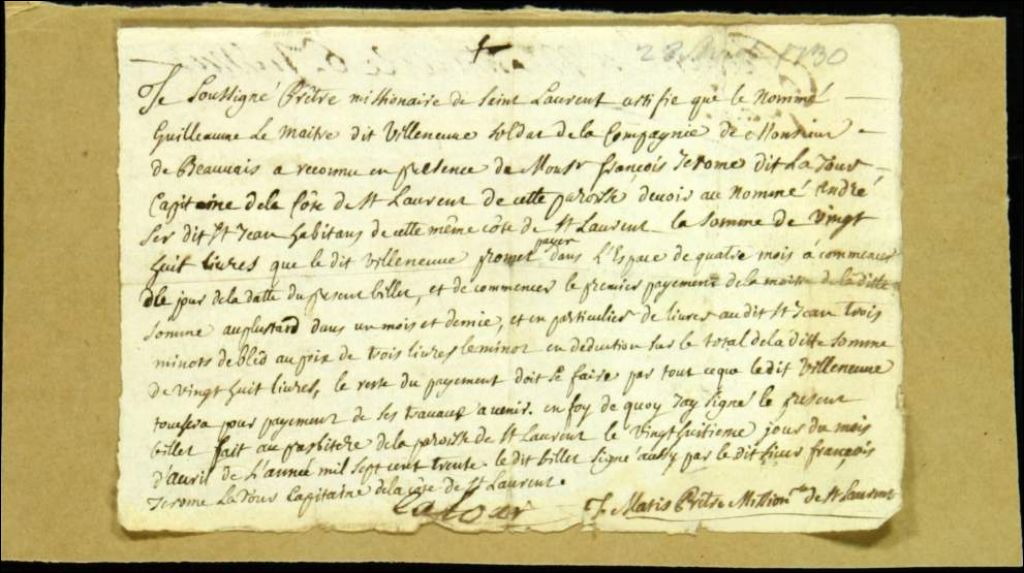 28 Avril 1730
Je Soussigné Prêtre missionaire de Seint Laurent certifie que le Nommé
Guilleaume Le maitre dit Villeneuve soldat de la Compagnie de Monsieur
de Beauvais a reconnu en presence de Monsr françois Jerome dit La Tour
Capitaine dela Côte de St Laurent de cette paroisse devoir au Nommé André
Ser dit St Jean habitans de cette même côte de St Laurent la somme de vingt
huit livres que le dit Villeneuve promet payer dans l'Espace de quatre mois à commencer
dle jour dela datte du present billet, et de commencer le premier payement de la moitié de la ditte
Somme auplustard dans un mois et demie, et en particulier de livrer audit St Jean trois
minots de bled au prix de trois livres le minot en deduction sur le total dela ditte Somme
de vingt huit livres, le reste du payement doit se faire par tout ceque ledit Villeneuve
touchera pour payement de ses travaux avenir. en foy de quoy Jay signé le present
billet fait au presbitere dela paroisse de St Laurent le vingthuitieme jour du mois
d'avril de L'année mil sept cent trente. le dit billet signé aussy par le dit sieur françois
Jerome La Tour Capitaine dela côte de St Laurent.
Latour J. Matis Prêtre Mission.re de St Laurent